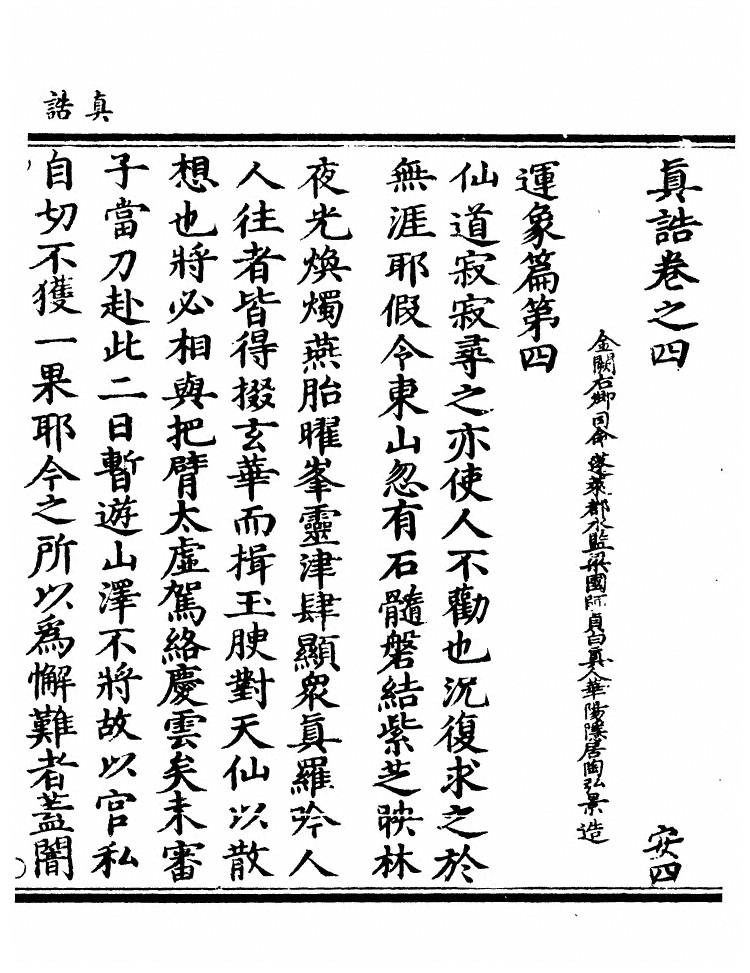 真誥
眞誥卷之四
安四
金闕右卿司命蓬萊都水監梁國師貞白真人華陽隱居陶弘景造
運象篇第四
仙道寂寂尋之亦使人不勸也況復求之於
無涯耶假令東山忽有石髓磐結紫芝映林
夜光煥燭燕胎曜峯靈津肆顯衆眞羅吟人
人往者皆得掇玄華而揖玉腴對天仙以散
想也將必相與把臂太虛駕絡慶雲矣未審
子當刀赴此二日暫遊山澤不將故以官私
自切不獲一果耶今之所以爲懈難者蓋闇